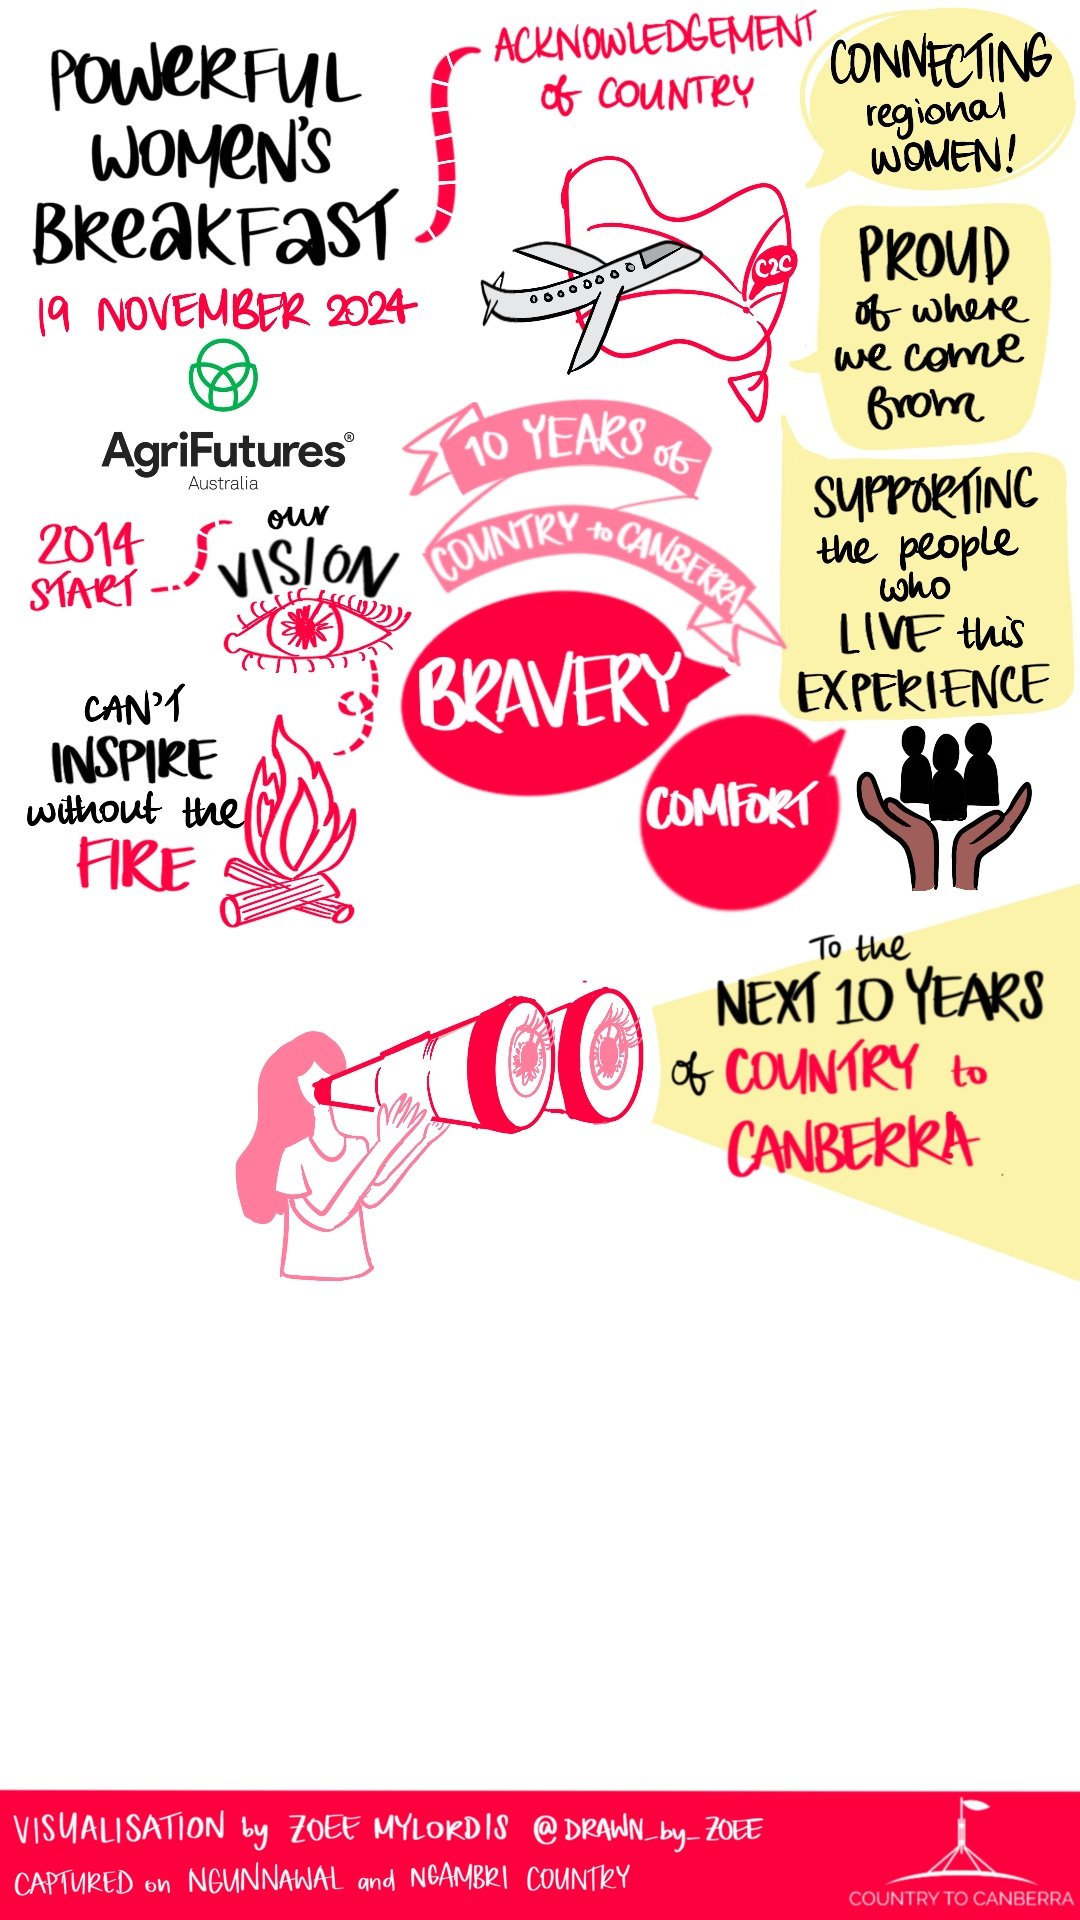 POWERFUL
WOMEN'S
BREAKFAST
19 NOVEMBER 2024
AgriFutures®
Australia
ACKNOWLEDGEMENT
of COUNTRY
C2C
CONNECTING
regional
WOMEN!
PROUD
of where
we come
from
SUPPORTING
the people
who
LIVE this
EXPERIENCE
10 YEARS of
COUNTRY to CANBERRA
2014
START
our
VISION
BRAVERY
COMFORT
CAN'T
INSPIRE
without the
FIRE
To the
NEXT 10 YEARS
of COUNTRY to
CANBERRA
VISUALISATION by ZOEE MYLORDIS @DRAWN_by_ZOEE
CAPTURED on NGUNNAWAL and NGAMBRI COUNTRY
COUNTRY TO CANBERRA